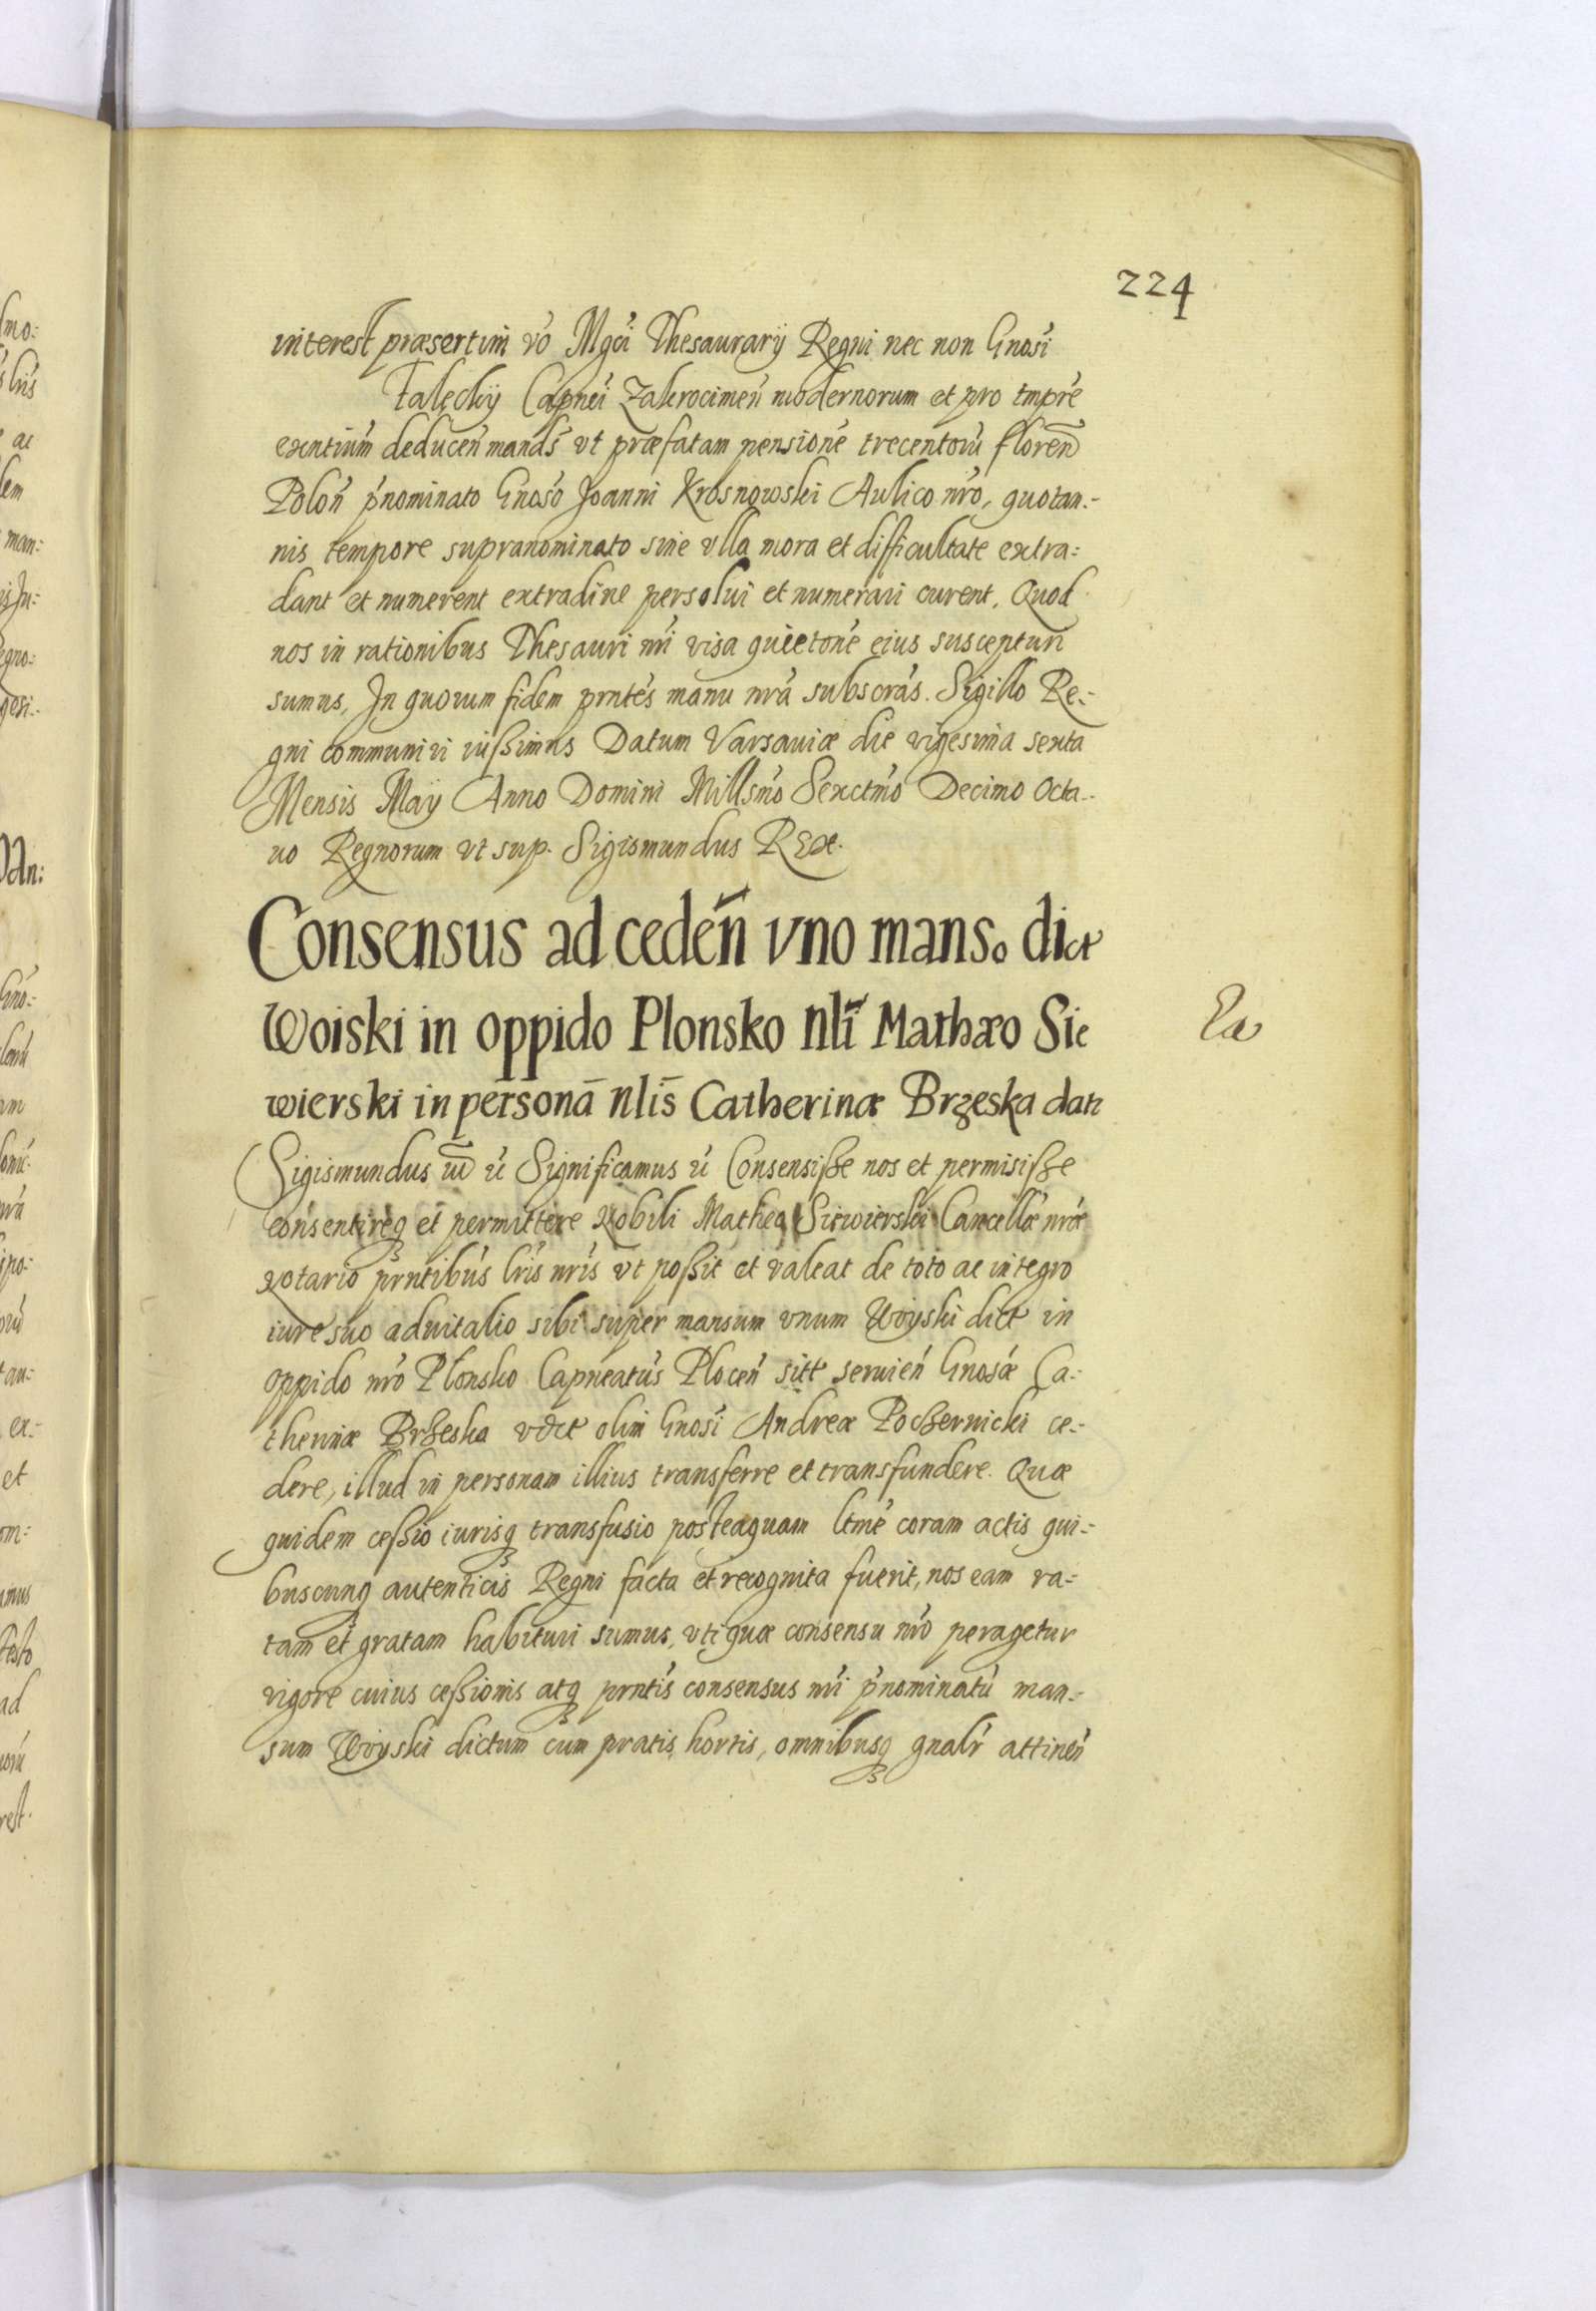 224
interest præsertim vo Mgci Thesaurarÿ Regni nec non Gnosi
Falęckÿ Capnei Zakrocimeñ modernorum et pro tmpre
exntium deduceñ mands vt præfatam pensione trecentorũ floreñ
Poloñ pnominato Gnoso Joanni Krosnowski Aulico nro, quotan:
nis tempore supranominato sine vlla mora et difficultate extra:
dant et numerent extradine persolui et numerari curent. Quod
nos in rationibus Thesauri nri visa quietone eius suscepturi
sumus, In quorum fidem prntes manu nra subscras. Sigillo Re:
gni communiri iußimus Datum Varsauiæ die vigesima sexta
Mensis Maÿ Anno Domini Millsmo Sexctmo Decimo Octa:
uo Regnorum vt sup. Sigismundus REX.
Consensus ad cedeñ vno manso dict
Woiski in oppido Plonsko Nli Mathæo Sie
wierski in personā Nlis Catherinæ Brzeska datꝰ
Sigismundus iii ũ Significamus ũ Consensiße nos et permisiße
consentireq et permittere Nobili Matheo Siewierski Cancellæ nræ
Notario prntibus lris nris vt poßit et valeat de toto ac integro
iure suo aduitalio sibi super mansum vnum Woyski dict in
oppido nro Plonsko Capneatus Ploceñ sitt seruieñ Gnosæ Ca:
therinæ Brzeska vdct olim Gnosi Andreæ Poczernicki ce:
dere, illud in personam illius transferre et transfundere. Quæ
quidem ceßio iurisq transfusio posteaquam ltme coram actis qui:
buscunq autenticis Regni facta et recognita fuerit, nos eam ra:
tam et gratam habituri sumus, vti quæ consensu nro peragetur
vigore cuius ceßionis atq prntis consensus nri pnominatũ man:
sum Woyski dictum cum pratis, hortis, omnibusq gnalr attineñ